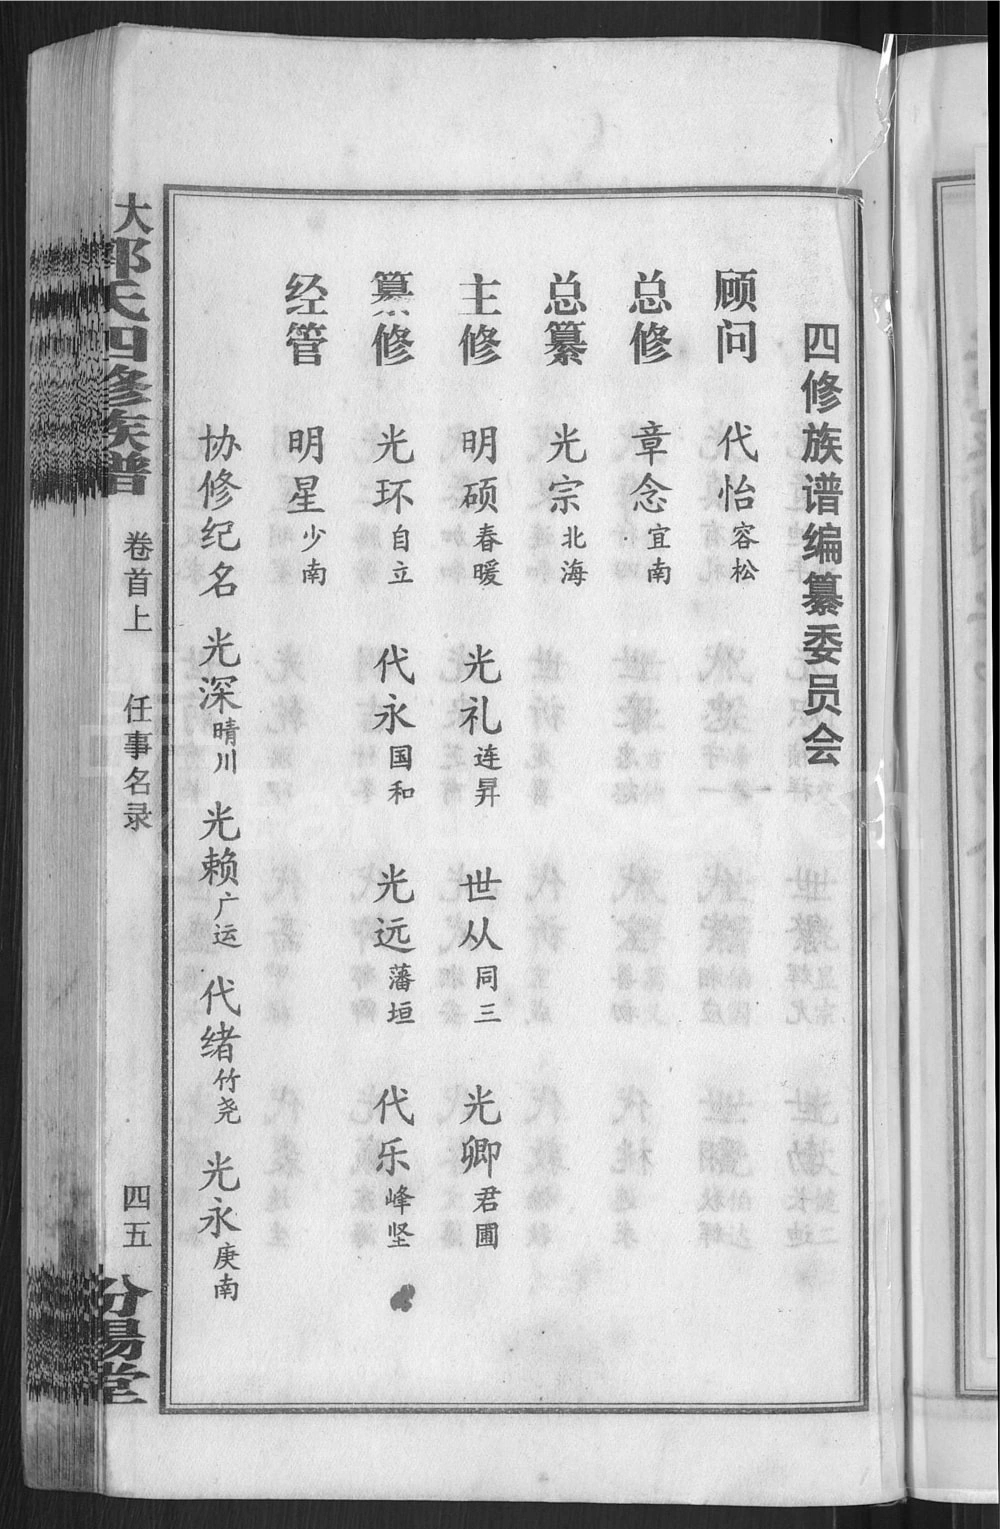 四修族谱编纂委员会
顾问 代怡容松
总修 章念宜南
总纂 光宗北海
主修 明硕春暖 光礼连昇 世从同三 光卿君圃
纂修 光环自立 代永国和 光远藩垣 代乐峰坚
经管 明星少南
协修纪名 光深晴川 光赖广运 代绪竹尧 光永庚南
大郭氏四修族谱 卷首上 任事名录 四五 汾陽堂